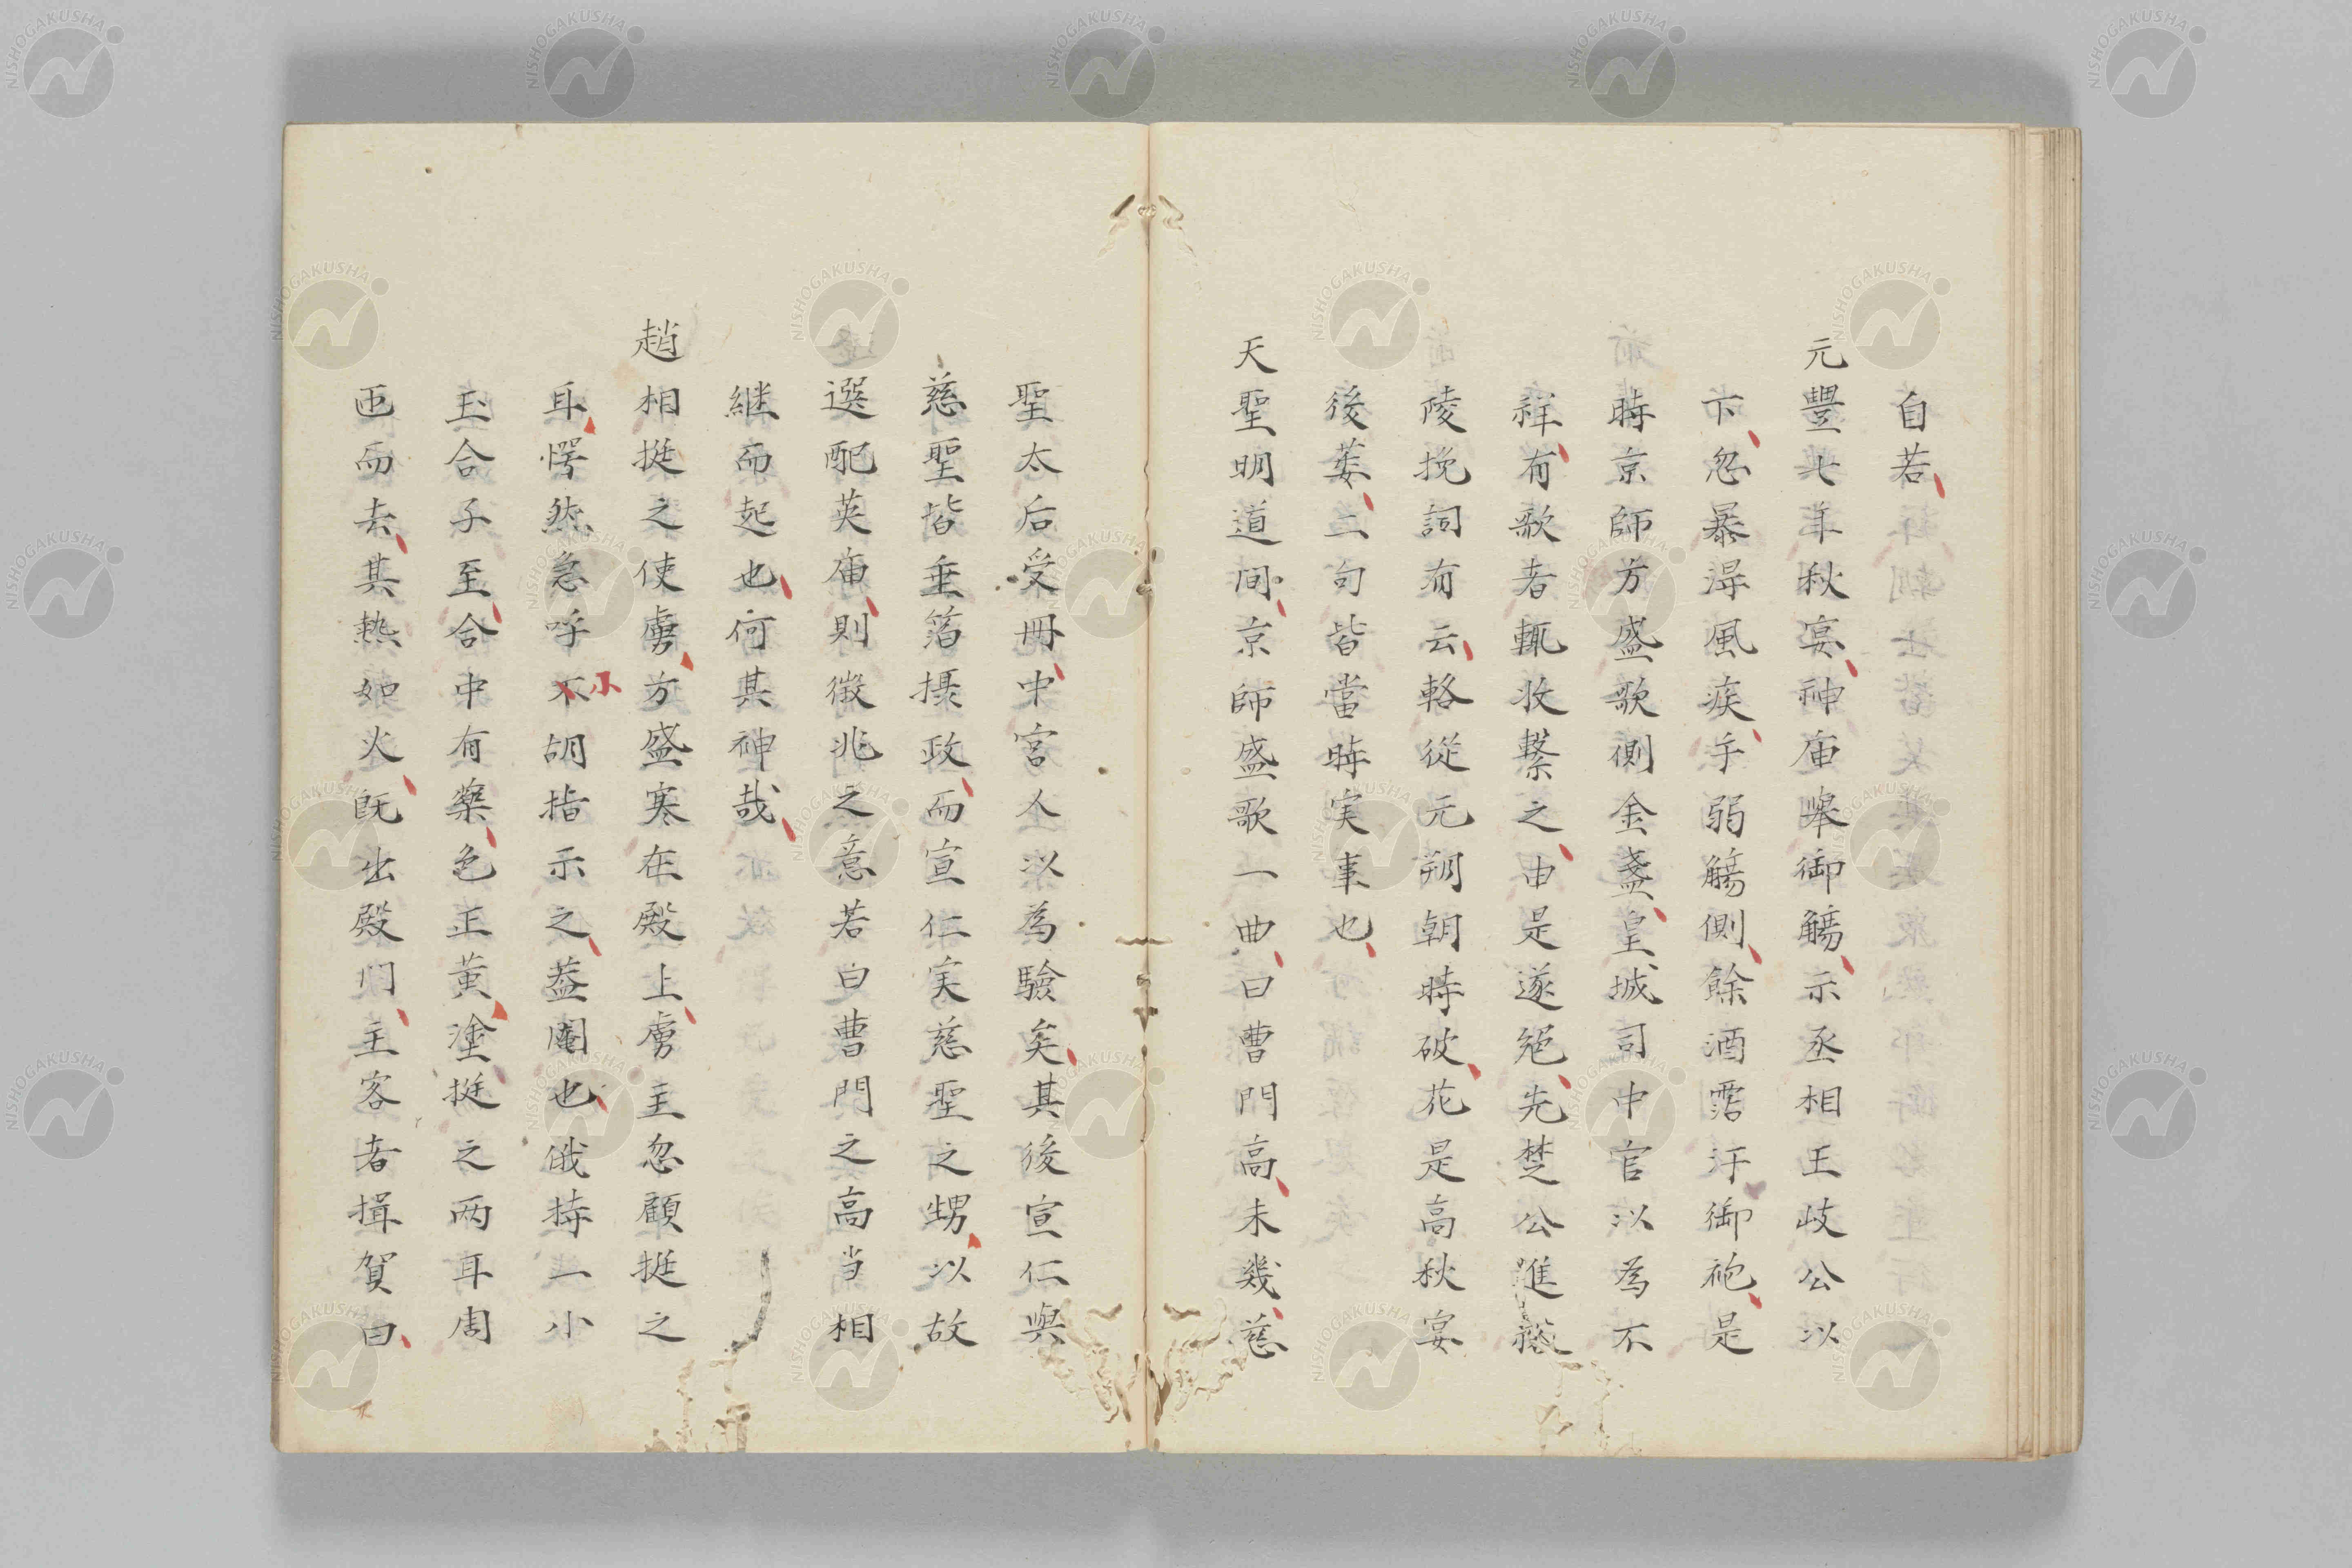 自若
元豊七年秋宴神庙舉御觴示丞相王岐公以
下忽暴得風疾手弱觴側餘酒霑汙御袍是
時京師方盛歌側金盞皇城司中官以為不
祥有歌者輒收繫之由是遂絕先楚公進
陵挽詞有云輅從元朔朝時破花是高秋宴
後萎二句皆當時実事也
天聖明道间京師盛歌一曲曰曹門高未幾慈
聖太后受冊中宮人以為驗矣其後宣仁與
慈聖皆垂箔攝政而宣仁実慈聖之甥以故
選配英庙則徵兆之意若曰曹門之高当相
継而起也何其神哉
趙相挺之使虜方盛寒在殿上虜主忽顧挺之
耳愕然急呼不小胡指示之葢閹也俄持一小
玉合子至合中有藥色正黄塗挺之两耳周
匝而去其熱如火既出殿门主客者揖賀曰
NISHOGAKUSHA